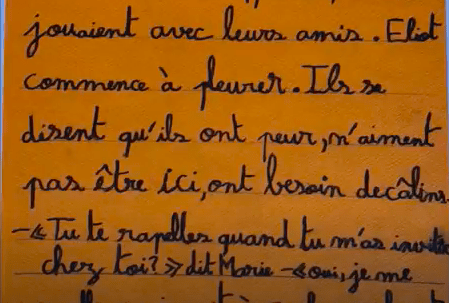 jouaient avec leurs amis. Eliot
commence à pleurer. Ils se
disent qu'ils ont peur, n'aiment
pas être ici, ont besoin de câlins.
-« Tu te rapelles quand tu m'as invitée
chez toi? » dit Marie -« oui, je me